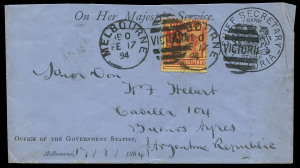 On Her Majesty's Service.
MELBOURNE
190
FE 17
94
VICTORIA
CHIEF SECRETARY
FRANK
VICTORIA
Señor Don
Wm F. Hebert
Casilla 104
Buenos Ayres
Argentine Republic
OFFICE OF THE GOVERNMENT STATIST,
Melbourne, 17/2/1894